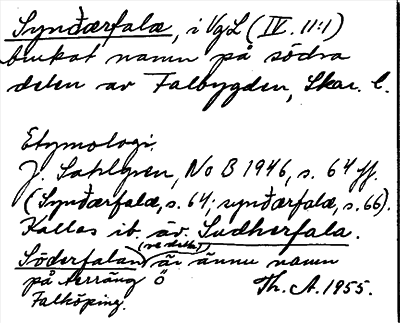 Synðærfalæ, i VgL (IV. 11:1)
brukat namn på södra
delen av Falbygden, Skar. l.
Etymologi.
J. Sahlgren, NoB 1946, s. 64 ff.
(Synðærfalæ, s. 64; synðærfalæ, s. 66).
Kallas ib. äv. Sudherfala.
(ne detta)
Söderfalan är ännu namn
på terräng Ö
Falköping. Th. A. 1955.